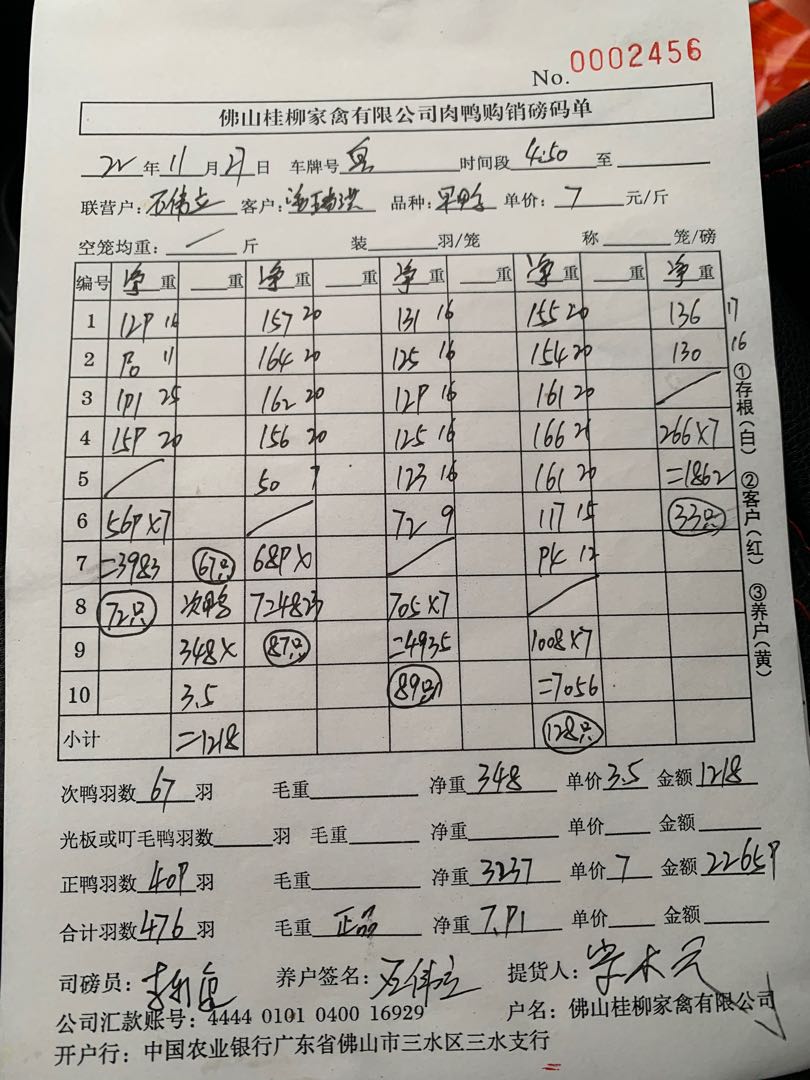 No. 0002456
佛山桂柳家禽有限公司肉鸭购销磅码单
22 年 11 月 27 日 车牌号 时间段 4:50 至
联营户: 石伟立 客户: 品种: 单价: 7 元/斤
空笼均重: / 斤 装 羽/笼 称 笼/磅
编号 净重 重 净重 重 净重 重 净重 重 净重
1 129 16 157 20 131 16 155 20 136 17
2 11 164 20 125 16 154 20 130 16
3 191 25 162 20 129 16 161 20
4 159 20 156 20 125 16 166 21 266×7
5 50 7 123 16 161 20 =1862
6 569×7 72 9 117 15 33只
7 =3983 67只 689× 94 12
8 72只 次鸭 7=4823 705×7
9 348× 87只 =4935 1008×7
10 3.5 89只 =7056
小计 =1218 128只
①存根(白) ②客户(红) ③养户(黄)
次鸭羽数 67 羽 毛重 净重 348 单价 3.5 金额 1218
光板或叮毛鸭羽数 羽 毛重 净重 单价 金额
正鸭羽数 409 羽 毛重 净重 3237 单价 7 金额 22659
合计羽数 476 羽 毛重 正品 净重 7.91 单价 金额
司磅员: 养户签名: 石伟立 提货人:
公司汇款账号: 4444 0101 0400 16929 户名: 佛山桂柳家禽有限公司
开户行: 中国农业银行广东省佛山市三水区三水支行